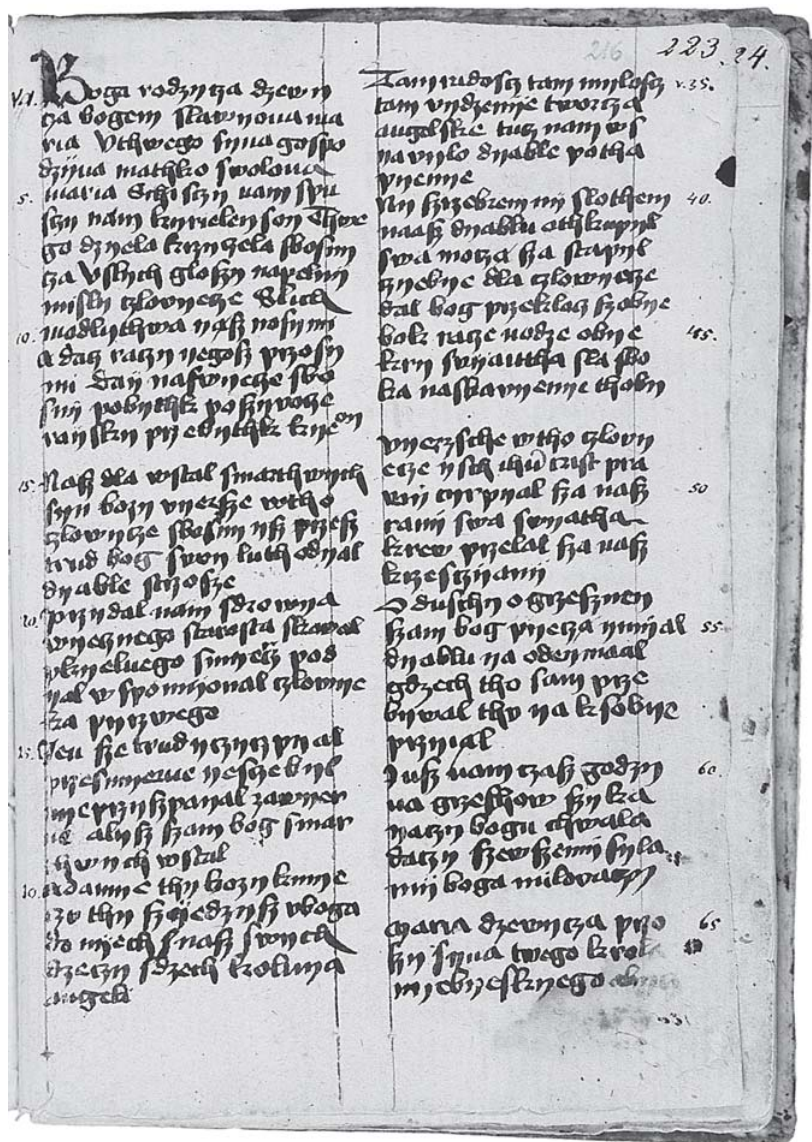 216 223. 24.
v.1. Boga rodzycza dzewy
cza bogem slawyona ma
ria Vthwego syna gospo
dzyna mathko swolona
5. maria Schisczy nam spu
sczy nam kyrieleyson Thwe
go dzyela krzyczela sbosny
cza Vslysch glosy napelny
misly czlowyecze Slich
10. modlythwa nasz nosymi
A dacz raczy negosz prosy
mi day naswyecze sbo
sny pobyth posziwocze
rayski przebythk kyrieon
15. Nasz dla wstal smarthwych
syn bozy vyersze wtho
czlowycze sbosni ysz przesz
trud bog swoy luth odyal
dyable strosze
20. przydal nam sdrowya
wyecznego starosta skowal
pkyelnego smyercz pod
yal wspomyonal czlowye
ka pyrzwego
25. Jen sze trudy czyrzpyal
przesmyerne yescze byl
nye przyszpyal zawyer
ne alysz szam bog smar
twych wstal
30. Adamie thy bozy kmye
czv thy szyedzysz vboga
do myech snasz swych
dzeczy sdzech kroluya
angeli
Tam radoscz tam miloscz v.35.
tam vydzenye tworcza
angelske tucz nam ws
yavylo dyable potha
pyenye
Ny szrzebrem ny slothem 40.
naasz dyablu othkupyl
swa mocza sza stapyl
czyebye dla czlowyecze
dal bog przeklocz szobye
bok racze nodze obye 45.
kry swyantha sla sbo
ka naszbawyenye thoby
vyerzsche wtho czlowy
ecze ysch ihu crist pra
wy cyrpyal sza nasz 50
rany swa swyatha
krew przelal sza nasz
krzesczyany
O duschy o grzeszney
szam bog pyecza ymyal 55
dyablu ya odeymaal
gdzech tho sam prze
bywal thv ya ksobye
przyial
Jusz nam czasz godzy 60.
na grzeschow szy ka
yaczy bogu chwala
daczy szewszemi syla
mij boga milovaczy
maria dzewycza pro 65
szy syna twego krola
nyebyeskyego